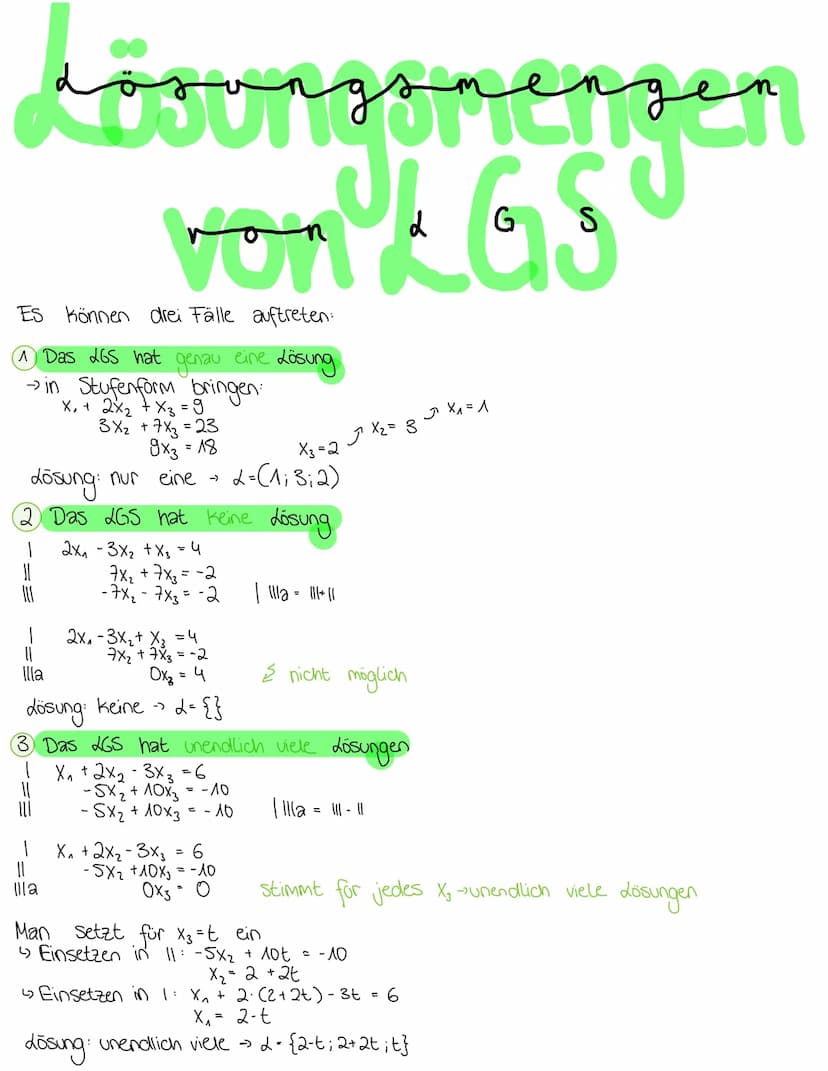 Lösungsmengen
von LGS
Es können drei Fälle auftreten:
① Das LGS hat genau eine Lösung
→ in Stufenform bringen:
x₁ + 2x₂ + x₃ = 9
3x₂ + 7x₃ = 23
9x₃ = 18 x₃ = 2 ↗ x₂ = 3 ↗ x₁ = 1
Lösung: nur eine → L=(1; 3; 2)
② Das LGS hat keine Lösung
I 2x₁ - 3x₂ + x₃ = 4
II 7x₂ + 7x₃ = -2
III -7x₂ - 7x₃ = -2 | IIIa = III+II
I 2x₁ - 3x₂ + x₃ = 4
II 7x₂ + 7x₃ = -2
IIIa 0x₃ = 4 ↯ nicht möglich
Lösung: keine → L = {}
③ Das LGS hat unendlich viele Lösungen
I x₁ + 2x₂ - 3x₃ = 6
II -5x₂ + 10x₃ = -10
III -5x₂ + 10x₃ = -10 | IIIa = III - II
I x₁ + 2x₂ - 3x₃ = 6
II -5x₂ + 10x₃ = -10
IIIa 0x₃ = 0 stimmt für jedes x₃ → unendlich viele Lösungen
Man setzt für x₃ = t ein
↳ Einsetzen in II: -5x₂ + 10t = -10
x₂ = 2 + 2t
↳ Einsetzen in I: x₁ + 2·(2+2t) - 3t = 6
x₁ = 2-t
Lösung: unendlich viele → L = {2-t; 2+2t; t}